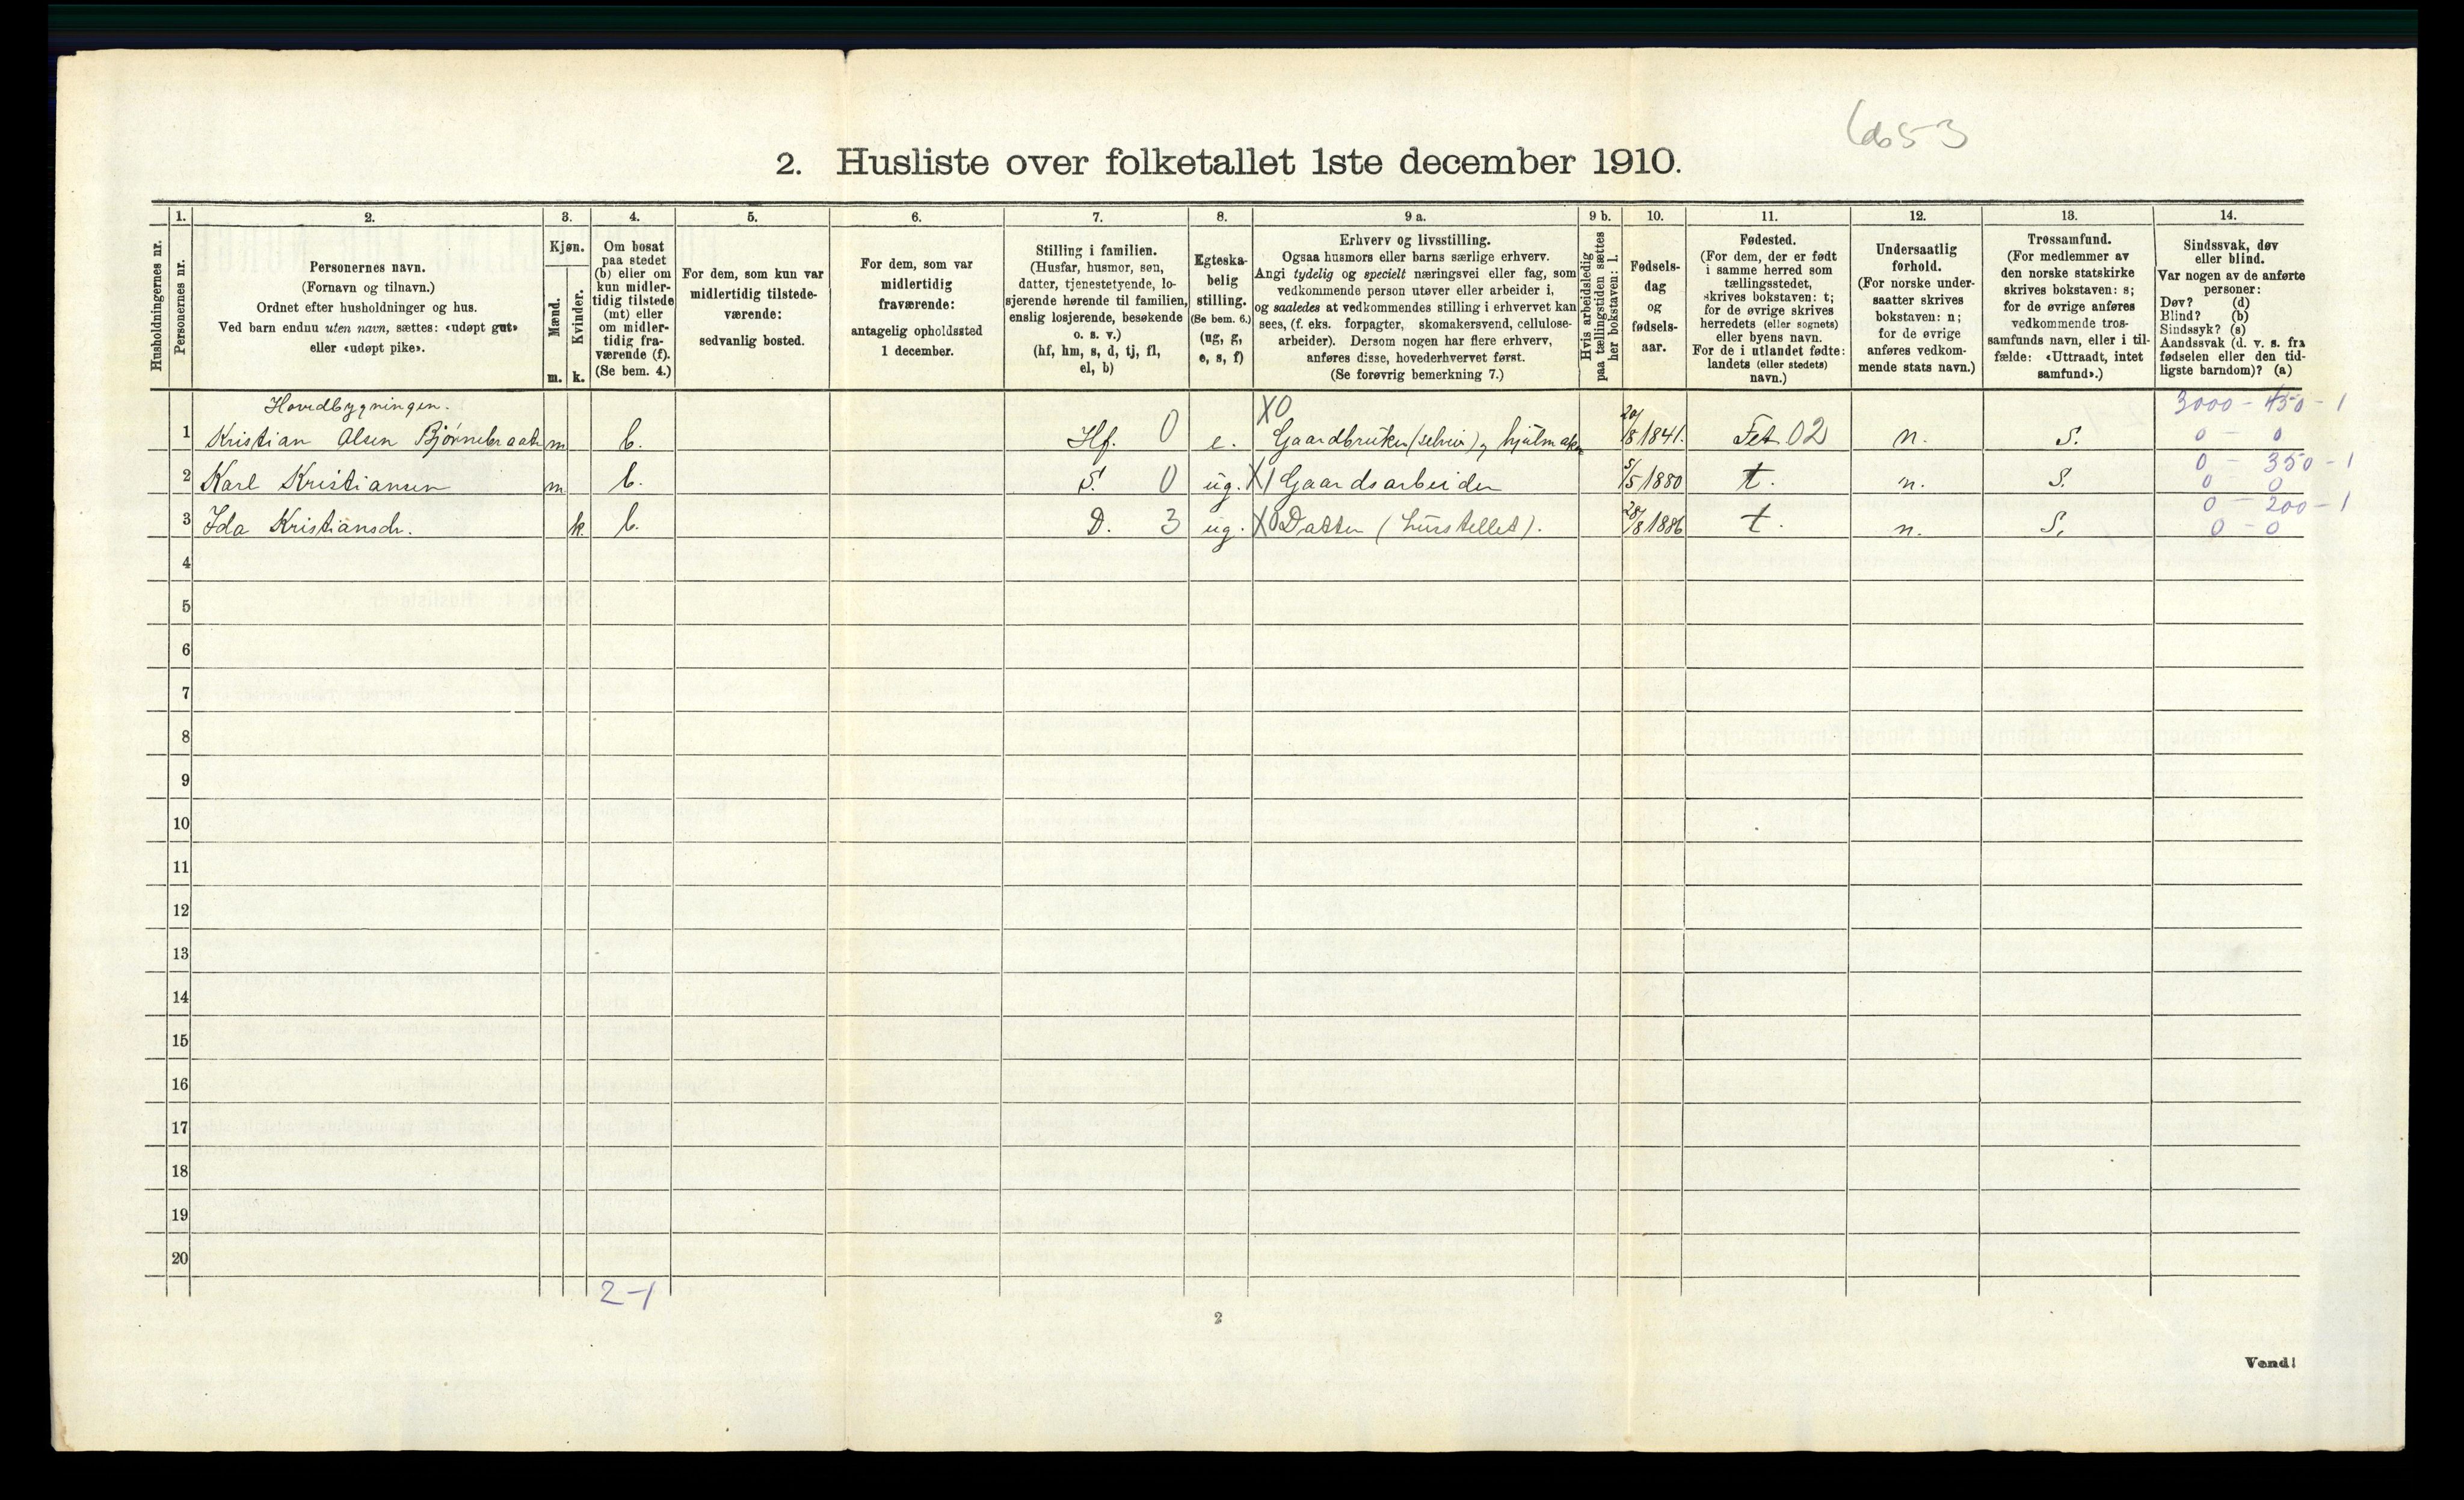 6653
2. Husliste over folketallet 1ste december 1910.
Husholdningernes nr.
1.
Personernes nr.
2.
Personernes navn.
(Fornavn og tilnavn.)
Ordnet efter husholdninger og hus.
Ved barn endnu uten navn, sættes: «udøpt gut»
eller «udøpt pike».
3.
Kjøn.
Mænd.
Kvinder.
m. k.
4.
Om bosat
paa stedet
(b) eller om
kun midler-
tidig tilstede
(mt) eller
om midler-
tidig fra-
værende (f).
(Se bem. 4.)
5.
For dem, som kun var
midlertidig tilstede-
værende:
sedvanlig bosted.
6.
For dem, som var
midlertidig
fraværende:
antagelig opholdssted
1 december.
7.
Stilling i familien.
(Husfar, husmor, søn,
datter, tjenestetyende, lo-
sjerende hørende til familien,
enslig losjerende, besøkende
o. s. v.)
(hf, hm, s, d, tj, fl,
el, b)
8.
Egteska-
belig
stilling.
(Se bem. 6.)
(ug, g,
e, s, f)
9 a.
Erhverv og livsstilling.
Ogsaa husmors eller barns særlige erhverv.
Angi tydelig og specielt næringsvei eller fag, som
vedkommende person utøver eller arbeider i,
og saaledes at vedkommendes stilling i erhvervet kan
sees, (f. eks. forpagter, skomakersvend, cellulose-
arbeider). Dersom nogen har flere erhverv,
anføres disse, hovederhvervet først.
(Se forøvrig bemerkning 7.)
9 b.
Hvis arbeidsledig
paa tællingstiden sættes
her bokstaven: l.
10.
Fødsels-
dag
og
fødsels-
aar.
11.
Fødested.
(For dem, der er født
i samme herred som
tællingsstedet,
skrives bokstaven: t;
for de øvrige skrives
herredets (eller sognets)
eller byens navn.
For de i utlandet fødte:
landets (eller stedets)
navn.)
12.
Undersaatlig
forhold.
(For norske under-
saatter skrives
bokstaven: n;
for de øvrige
anføres vedkom-
mende stats navn.)
13.
Trossamfund.
(For medlemmer av
den norske statskirke
skrives bokstaven: s;
for de øvrige anføres
vedkommende tros-
samfunds navn, eller i til-
fælde: «Uttraadt, intet
samfund».)
14.
Sindssvak, døv
eller blind.
Var nogen av de anførte
personer:
Døv? (d)
Blind? (b)
Sindssyk? (s)
Aandssvak (d. v. s. fra
fødselen eller den tid-
ligste barndom)? (a)
Hovedbygningen. X0 3000 - 450 - 1
1 Kristian Olsen Bjørnebraat m b. Hf. 0 e. Gaardbruker (selveier), hjulmaker 20/8 1841. Fet 02 n. S. 0 - 0
0 - 350 - 1
2 Karl Kristiansen m b. S. 0 ug. X1 Gaardsarbeider 5/5 1880 t. n. S. 0 0
0 - 200 - 1
3 Ida Kristiansdr. k. b. D. 3 ug. X0 Datter (husstellet). 28/8 1886 t. n. S. 0 - 0
4
5
6
7
8
9
10
11
12
13
14
15
16
17
18
19
20
2-1
2
Vend!